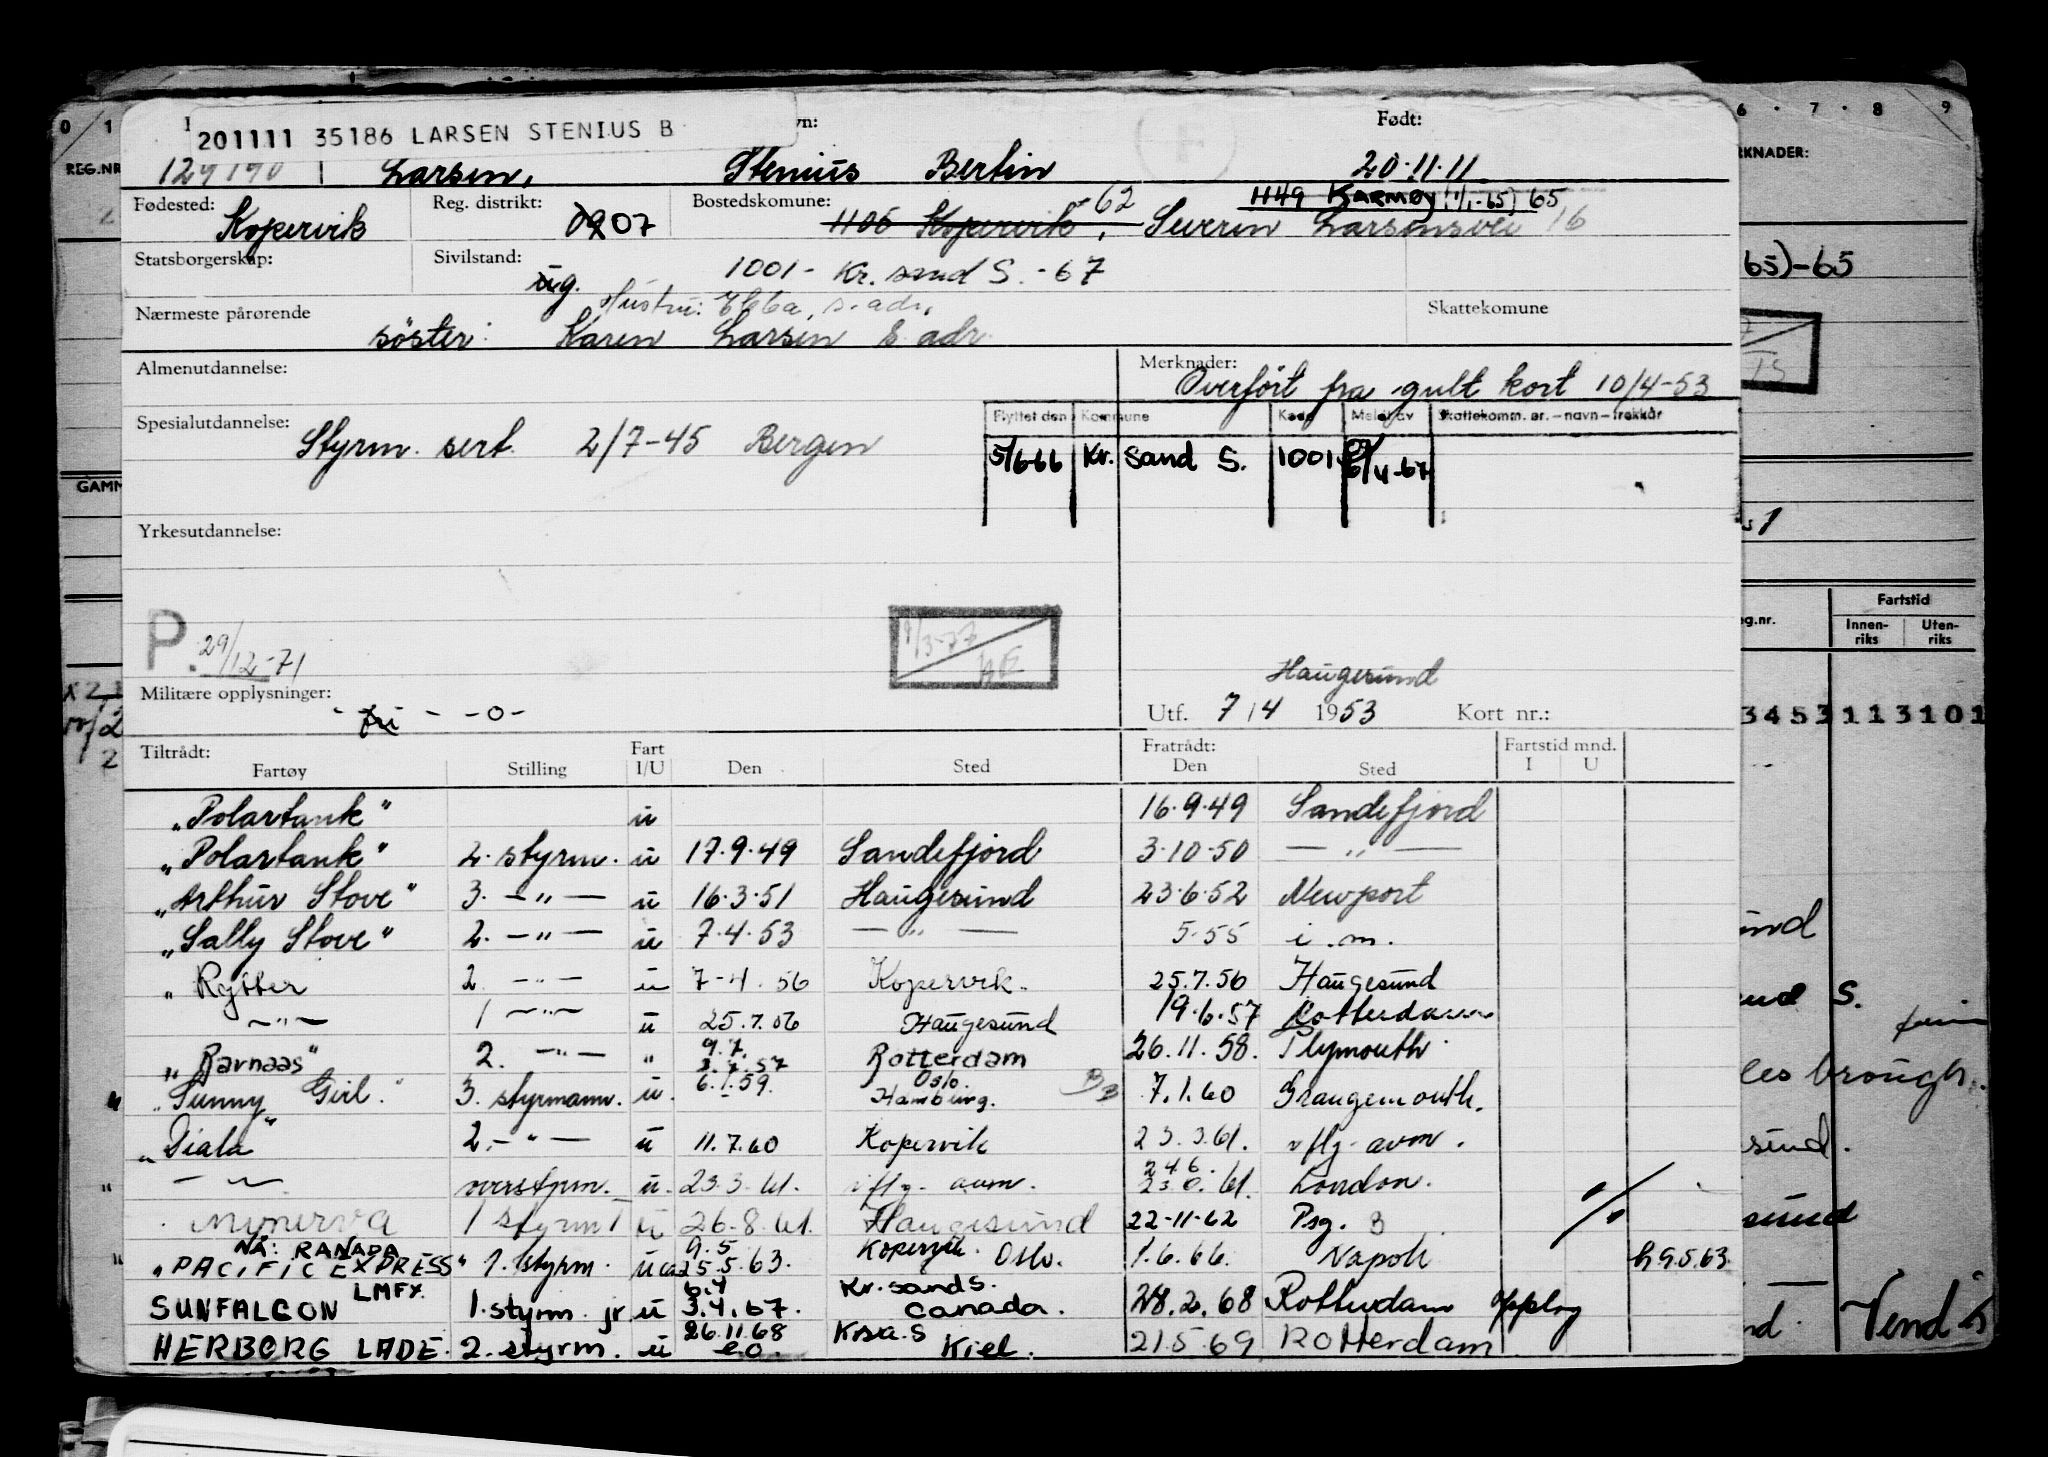 201111 35186 LARSEN STENIUS B
Født:
129190 1 Larsen, Stenius Bertin 20.11.11
Fødested: Kopervik
Reg. distrikt: 0907
Bostedskomune: 1105 Kopervik, -62 Severin Larsensvei 16
1149 KARMØY (1/1-65) 65
Statsborgerskap:
Sivilstand: ug.
1001 - Kr. sand S. - 67
Hustru: Ebba, s. adr.
Nærmeste pårørende
Skattekomune
söster: Karen Larsen s. adr.
Almenutdannelse:
Merknader: Overfört fra gult kort 10/4-53
Flyttet den Kommune Kode Meldt av Skattekomm. ar. – navn – trekkår
5/6-66 Kr. Sand S. 1001 6/4-67
Spesialutdannelse: Styrm. sert. 2/7-45 Bergen
Yrkesutdannelse:
P. 29/12-71
1/3-77
Militære opplysninger: fri - -0-
Haugesund
Utf. 7/4 1953 Kort nr.:
Tiltrådt: Fart Fratrådt: Fartstid mnd.
Fartøy Stilling I/U Den Sted Den Sted I U
„Polartank" u 16.9.49 Sandefjord
„Polartank" 2. styrm. u 17.9.49 Sandefjord 3.10.50 — „ —
„Arthur Stove" 3. — „ — u 16.3.51 Haugesund 23.6.52 Newport
„Sally Stove" 2. — „ — u 7.4.53 — „ — 5.55 i. m.
„Rytter 2 — „ — u 7-4.56 Kopervik. 25.7.56 Haugesund
— „ — 1 — „ — u 25.7.56 Haugesund 19.6.57 Rotterdam
„Rarnaas" 2. — „ — „ 9.7. 3.7.57 Rotterdam 26.11.58. Plymouth.
„Sunny Girl." 3. styrmann. u. 6.1.59. Oslo. Hamburg. 7.1.60 Grangemouth.
„Diala" 2. — „ — u 11.7.60 Kopervik 23.3.61. v flg. avm.
— „ — overstyrm. u. 23.3.61. v flg. avm. 24.6. 61. London.
Mynerva 1 styrm u 26.8.61. Haugesund 22-11-62 Psg. B
NÅ: RANADA
„PACIFIC EXPRESS" 1. styrm. u 9.5 25.5.63. Kopervik. Oslo. 1.6.66. Napoli h 9.5.63.
LMFX
SUNFALCON 1. styrm jr u 6.4 3.4.67. Kr. sand S. Canada. 28.2.68 Rotterdam opplag
HERBORG LADE. 2. styrm. u 26.11.68 e.o. Krsa. S Kiel. 21.5.69 Rotterdam
0 1
REG.NR
GAMM
6 . 7 . 8 9
RKNADER:
65)-65
Fartstid
g.nr. Innen-riks Uten-riks
3453113101
und
S.
les brough.
sund.
sund
nd. Vend